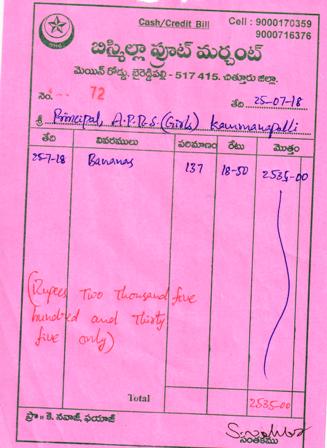 Cash/Credit Bill
Cell : 9000170359
9000716376
బిస్మిల్లా ఫ్రూట్ మర్చంట్
మెయిన్ రోడ్డు, బైరెడ్డిపల్లి - 517 415. చిత్తూరు జిల్లా.
నెం. 72
తేది 25-07-18
శ్రీ Principal, A.P.R.S.(Girls) Kammanapalli
తేది వివరములు పరిమాణం రేటు మొత్తం
25-7-18 Bananas 137 18-50 2535-00
(Rupees Two Thousand five
hundred and Thirty
five only)
Total 2535-00
ప్రొ॥ కె. నవాజ్, ఫయాజ్
సంతకము